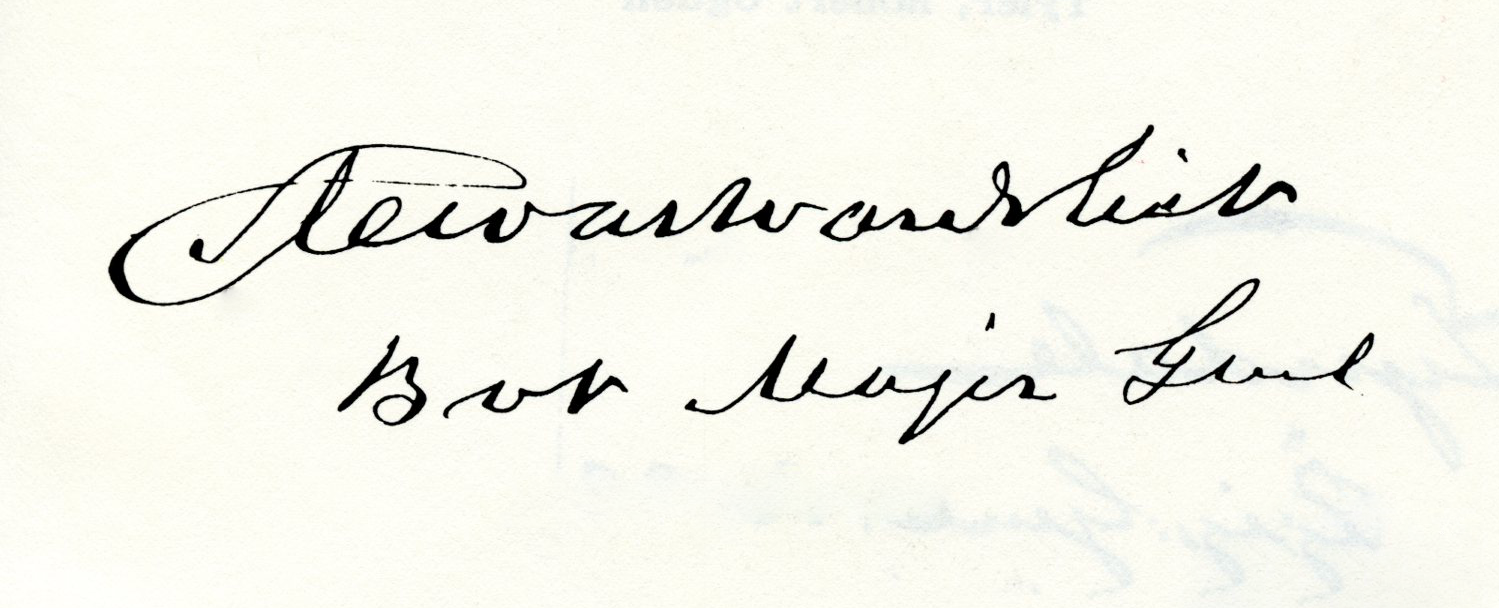 Stewart Van Vliet
Bvt Major Genl